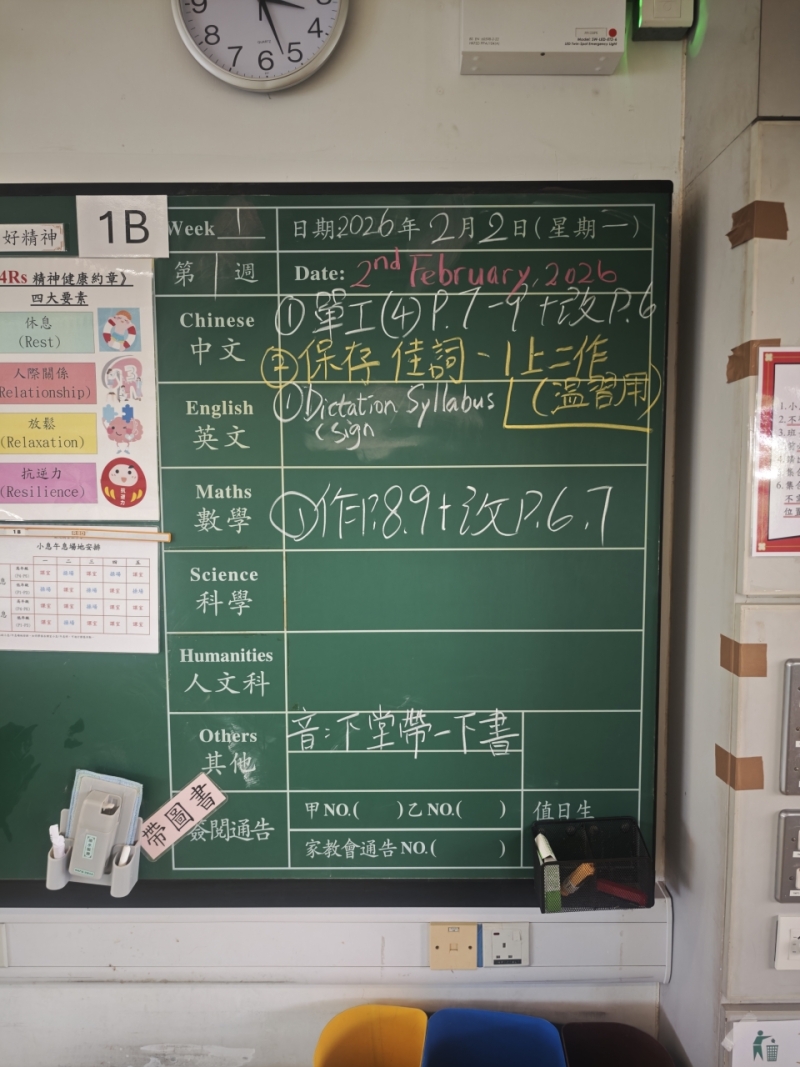 9
8
7
6
5
4
3
QUARTZ
1B
好精神
4Rs 精神健康約章》
四大要素
休息
(Rest)
人際關係
Relationship)
放鬆
(Relaxation)
抗逆力
(Resilience)
小息午息場地安排
一 二 三 四 五
Week 1
日期:2026年2月2日(星期一)
第1週
Date: 2nd February, 2026
Chinese
中文
① 單工(4) P.7-9+改P.6
② 保存 佳詞-1上二作
(溫習用)
English
英文
① Dictation Syllabus
(sign
Maths
數學
① 作P.8.9+改P.6.7
Science
科學
Humanities
人文科
Others
其他
音:下堂帶一下書
簽閱通告
甲NO.( )乙NO.( )
值日生
家教會通告NO.( )
帶圖書